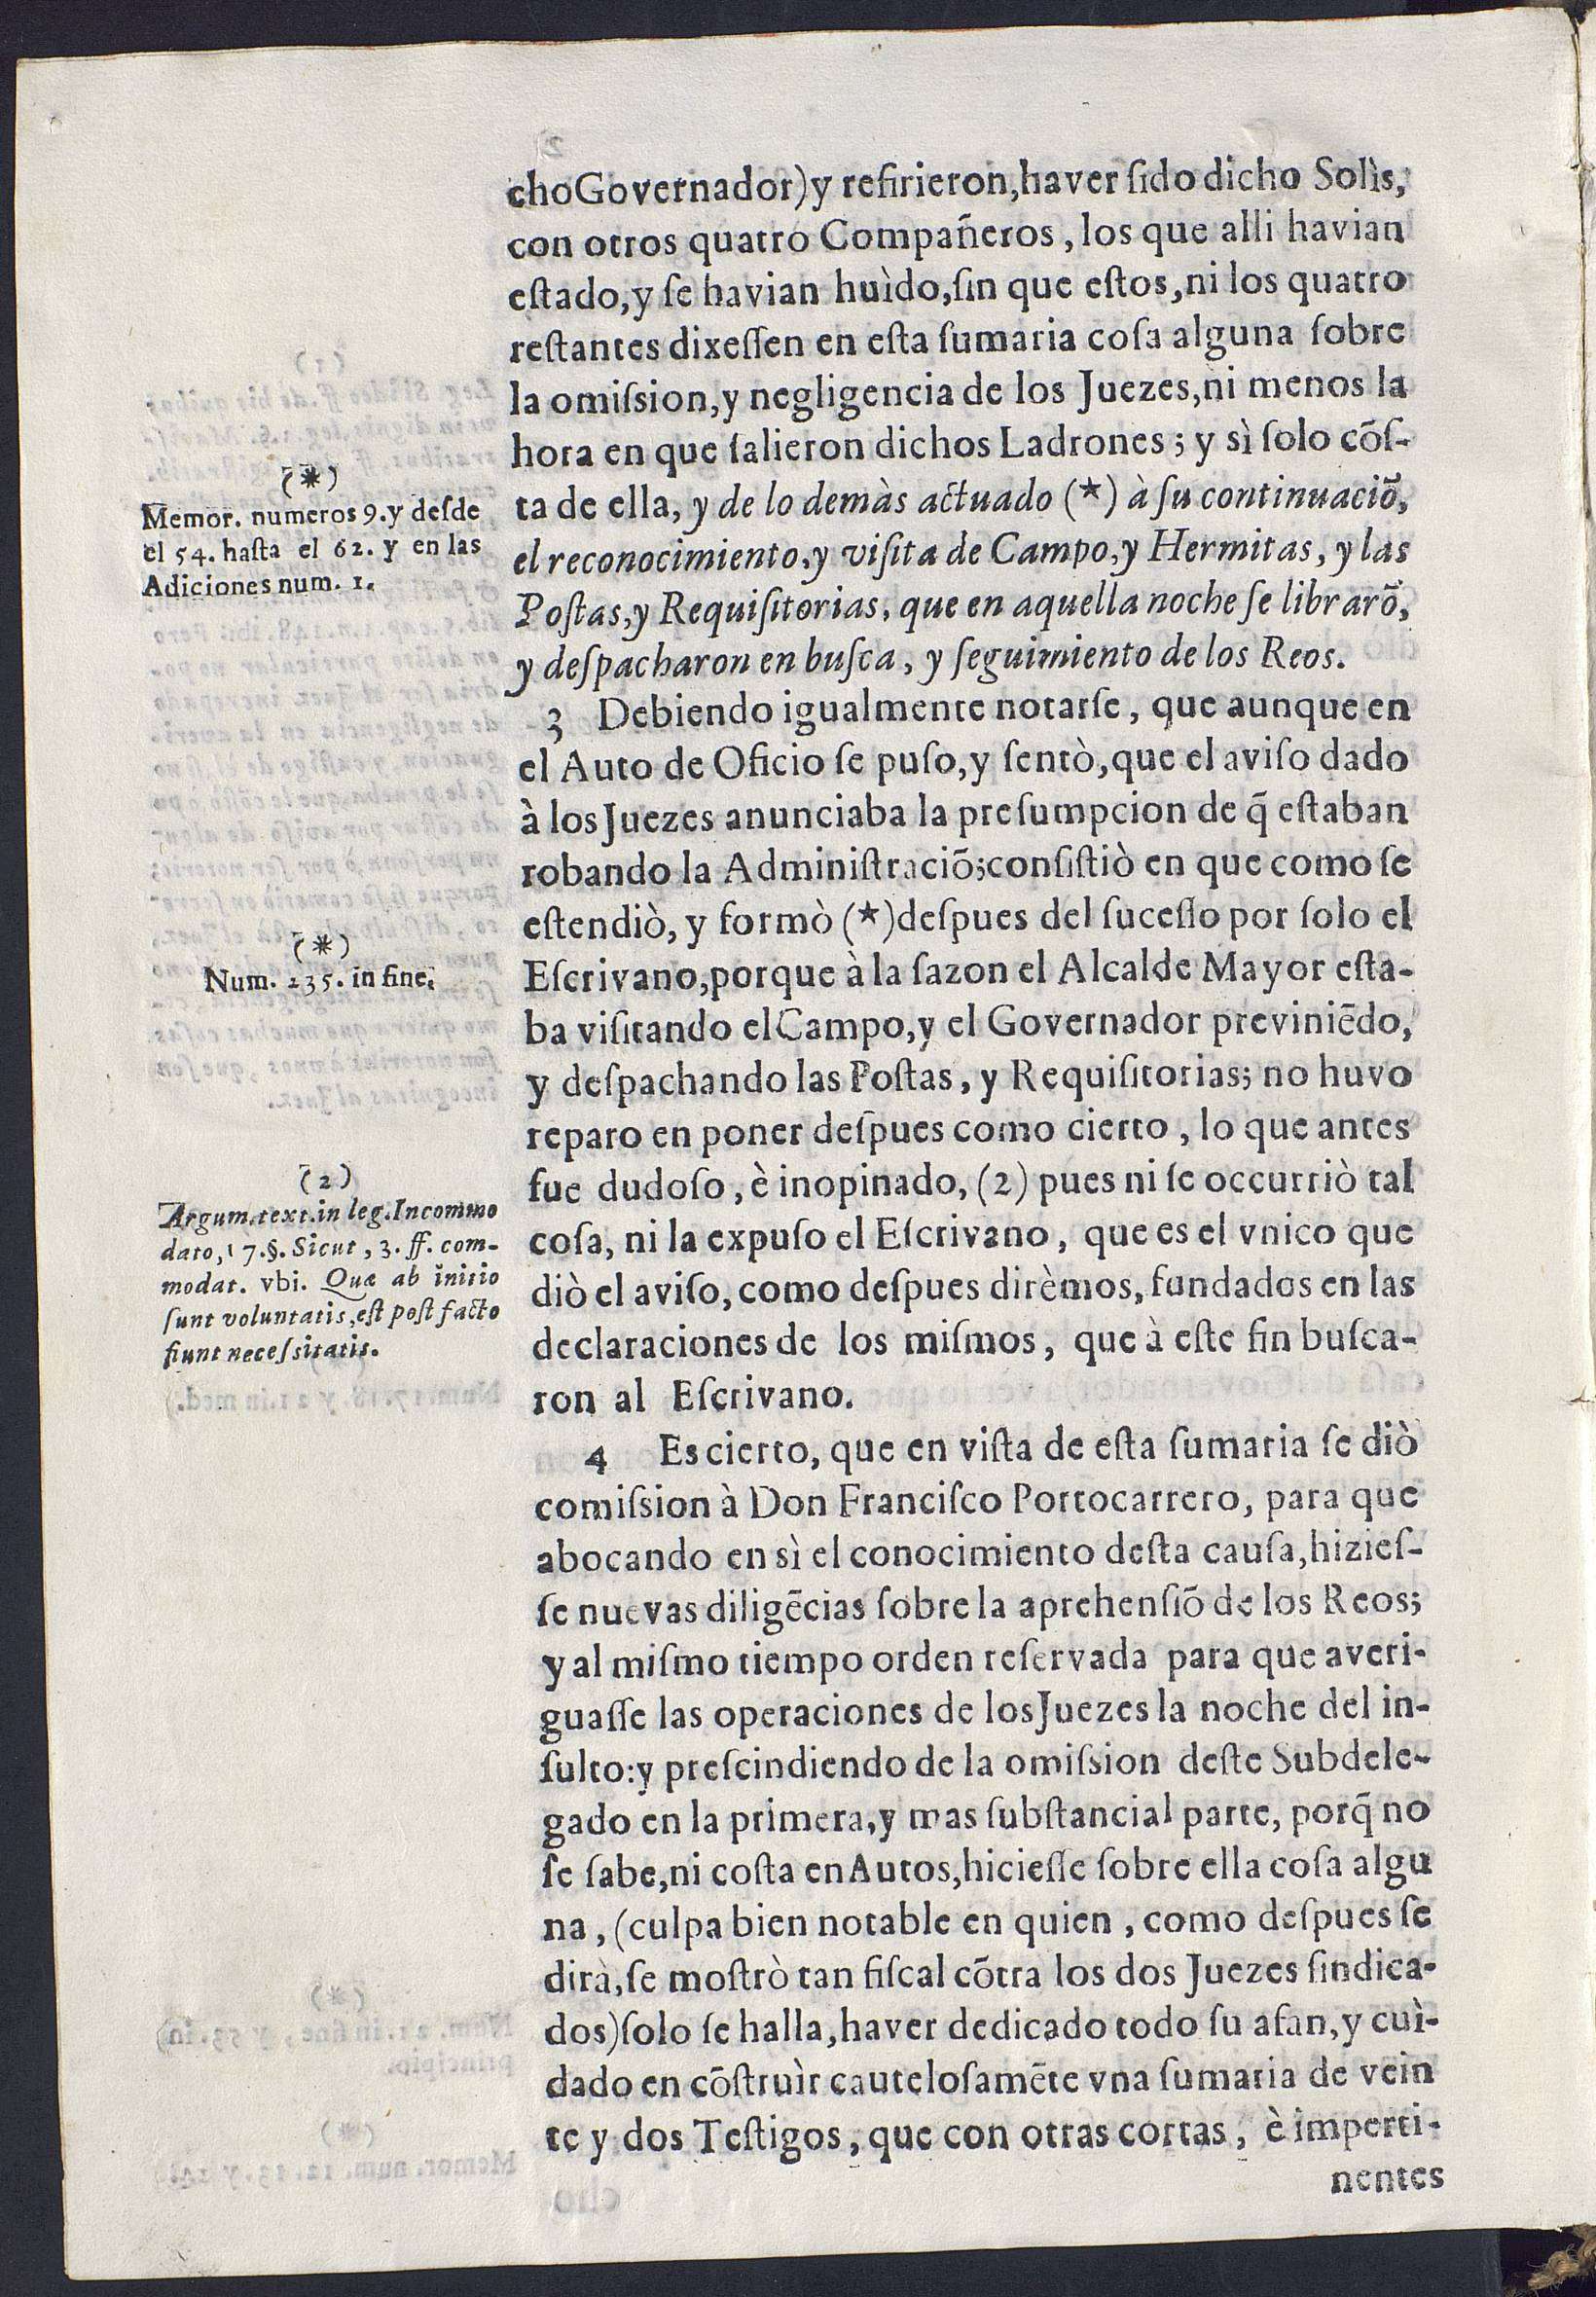 cho Governador) y refirieron, haver ſido dicho Solìs,
con otros quatro Compañeros, los que alli havian
eſtado, y ſe havian huìdo, ſin que eſtos, ni los quatro
reſtantes dixeſſen en eſta ſumaria coſa alguna ſobre
la omiſsion, y negligencia de los Juezes, ni menos la
hora en que ſalieron dichos Ladrones; y sì ſolo cõſ-
ta de ella, y de lo demàs actuado (*) à ſu continuaciõ,
el reconocimiento, y viſita de Campo, y Hermitas, y las
Poſtas, y Requiſitorias, que en aquella noche ſe librarõ,
y deſpacharon en buſca, y ſeguimiento de los Reos.
(*)
Memor. numeros 9. y deſde
el 54. haſta el 62. y en las
Adiciones num. 1.
3 Debiendo igualmente notarſe, que aunque en
el Auto de Oficio ſe puſo, y ſentò, que el aviſo dado
à los Juezes anunciaba la preſumpcion de q̃ eſtaban
robando la Adminiſtraciõ; conſiſtiò en que como ſe
eſtendiò, y formò (*) deſpues del ſuceſſo por ſolo el
Eſcrivano, porque à la ſazon el Alcalde Mayor eſta-
ba viſitando el Campo, y el Governador previniẽdo,
y deſpachando las Poſtas, y Requiſitorias; no huvo
reparo en poner deſpues como cierto, lo que antes
fue dudoſo, è inopinado, (2) pues ni ſe occurriò tal
coſa, ni la expuſo el Eſcrivano, que es el vnico que
diò el aviſo, como deſpues dirèmos, fundados en las
declaraciones de los miſmos, que à eſte fin buſca-
ron al Eſcrivano.
(*)
Num. 235. in fine.
(2)
Argum. text. in leg. Incommo
dato, 17. §. Sicut, 3. ff. com-
modat. vbi. Quæ ab initio
ſunt voluntatis, eſt poſt facto
fiunt neceſsitatis.
4 Es cierto, que en viſta de eſta ſumaria ſe diò
comiſsion à Don Franciſco Portocarrero, para que
abocando en sì el conocimiento deſta cauſa, hizieſ-
ſe nuevas diligẽcias ſobre la aprehenſiõ de los Reos;
y al miſmo tiempo orden reſervada para que averi-
guaſſe las operaciones de los Juezes la noche del in-
ſulto: y preſcindiendo de la omiſsion deſte Subdele-
gado en la primera, y mas ſubſtancial parte, porq̃ no
ſe ſabe, ni coſta en Autos, hicieſſe ſobre ella coſa algu
na, (culpa bien notable en quien, como deſpues ſe
dirà, ſe moſtrò tan fiſcal cõtra los dos Juezes ſindica-
dos) ſolo ſe halla, haver dedicado todo ſu afan, y cuì-
dado en cõſtruìr cauteloſamẽte vna ſumaria de vein
te y dos Teſtigos, que con otras cortas, è imperti-
nentes